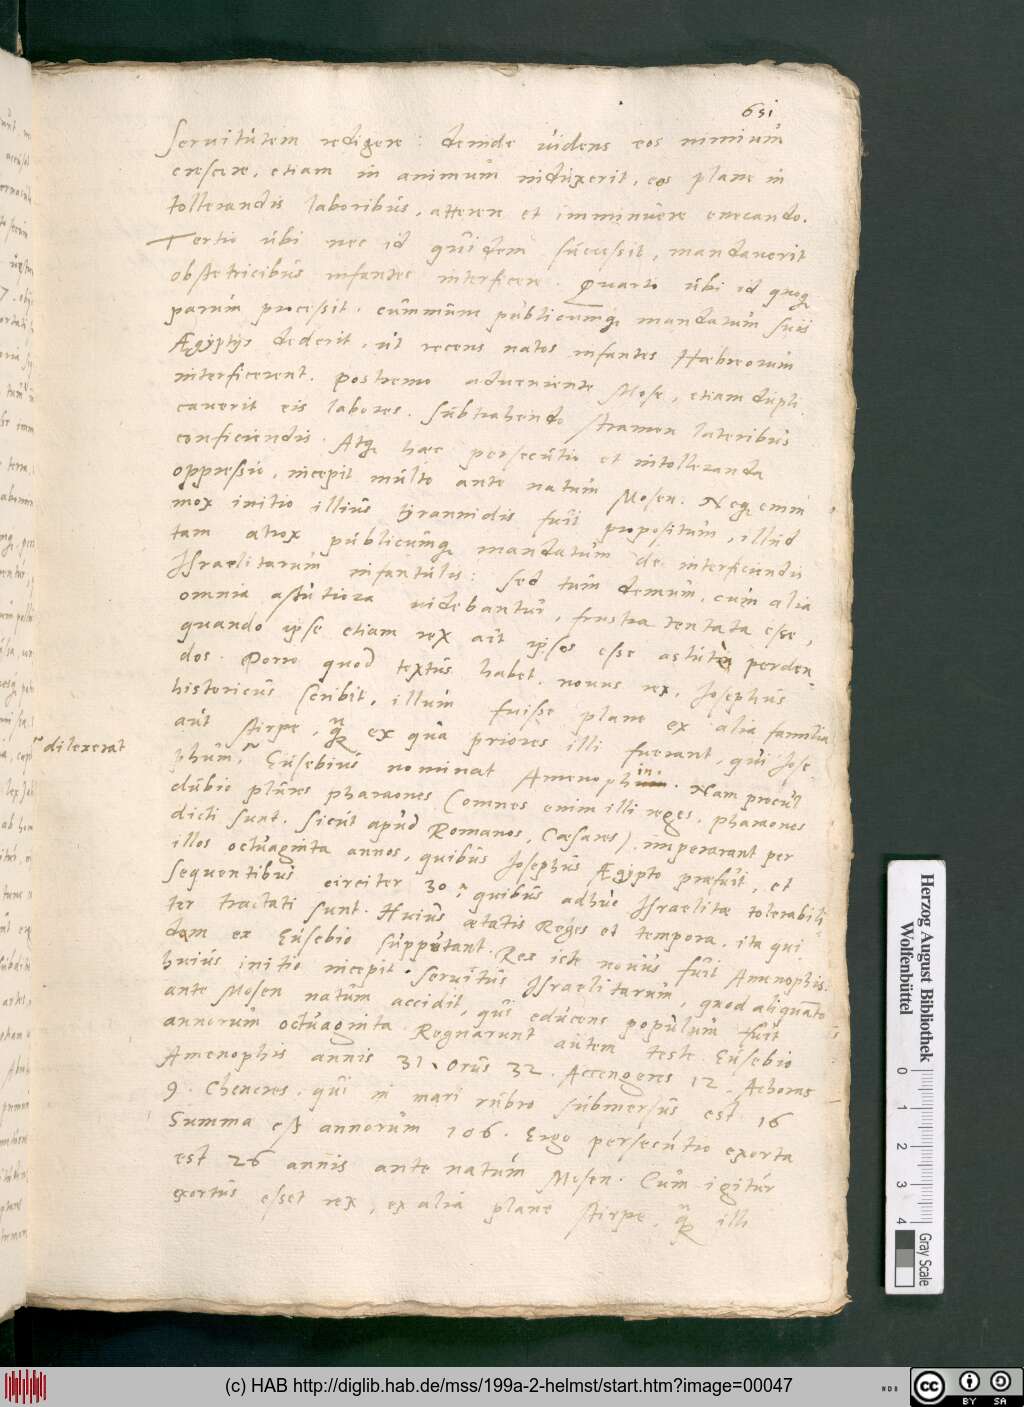 651
servitutem redigere: deinde videns eos nimium
crescere, etiam in animum induxerit, eos plane in
tollerandis laboribus, atterere et imminuere enecando.
Tertio ubi nec id quidem successit, mandaverit
obstetricibus infantes interficere. Quarto ubi id quoq
parum processit, cummune publicumq mandatum suis
Ægyptijs dederit, ut recens natos infantes Hæbreorum
interficerent. Postremo adveniente Mose, etiam dupli
caverit eis labores. subtrahendo stramen lateribus
conficiendis. Atq hæc persecutio et intolleranda
oppressio, incepit multo ante natum Mosen. Neq enim
mox initio illius tyrannidis fuit propositum, illud
tam atrox publicumq mandatum de interficiendis
Israelitarum infantulis: sed tum demum, cum alia
omnia astutiora videbantur, frustra tentata esse,
quando ipse etiam rex ait ipsos esse astute perden
dos. Porro quod textus habet. novus rex, Josephus
historicus scribit, illum fuisse plane ex alia familia
aut stirpe, qr ex qua priores illi fuerant, qui Jose
dilexerat
phum, Eusebius nominat Amenophin. Nam procul
dubio plures pharaones (omnes enim illi reges, pharaones
dicti sunt. sicut apud Romanos, Cæsares) imperarant per
illos octuaginta annos, quibus Josephus Ægypto præfuit, et
sequentibus circiter 30, quibus adhuc Israelitæ tolerabili
ter tractati sunt. Huius ætatis Reges et tempora, ita qui
dam ex Eusebio supputant. Rex iste novus fuit Amenophis.
huius initio incepit servitus Israelitarum, quod aliquanto
ante Mosen natum accidit, qui educens populum fuit
annorum octuaginta. Regnarunt autem teste Eusebio
Amenophis annis 31, Orus 32. Accengeres 12. Achoras
9. Chencres. qui in mari rubro submersus est 16
Summa est annorum 106. Ergo persecutio exorta
est 26 annis ante natum Mosen. Cum igitur
exortus esset rex, ex alia plane stirpe, qr illi
Herzog August Bibliothek
Wolfenbüttel
0 1 2 3 4
Gray Scale
(c) HAB http://diglib.hab.de/mss/199a-2-helmst/start.htm?image=00047
cc BY SA